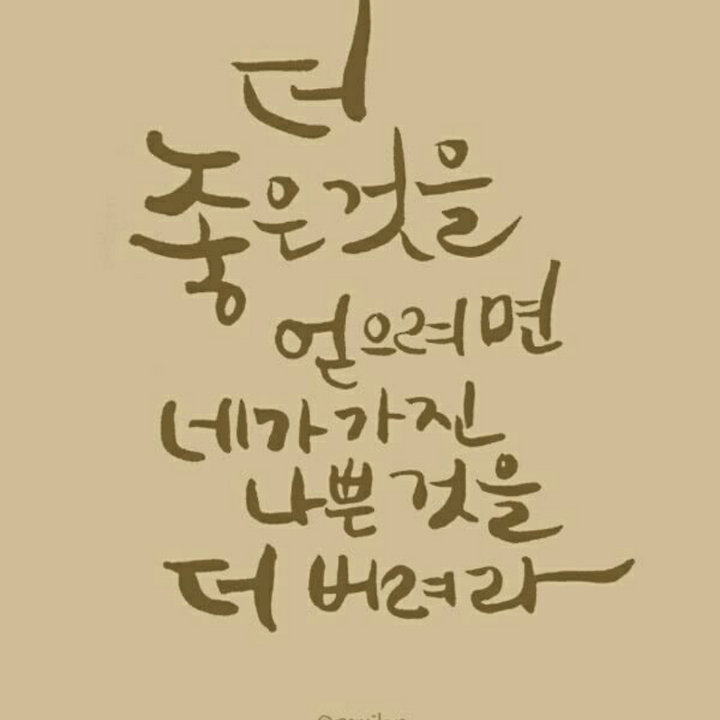 더
좋은것을
얻으려면
네가 가진
나쁜 것을
더 버려라